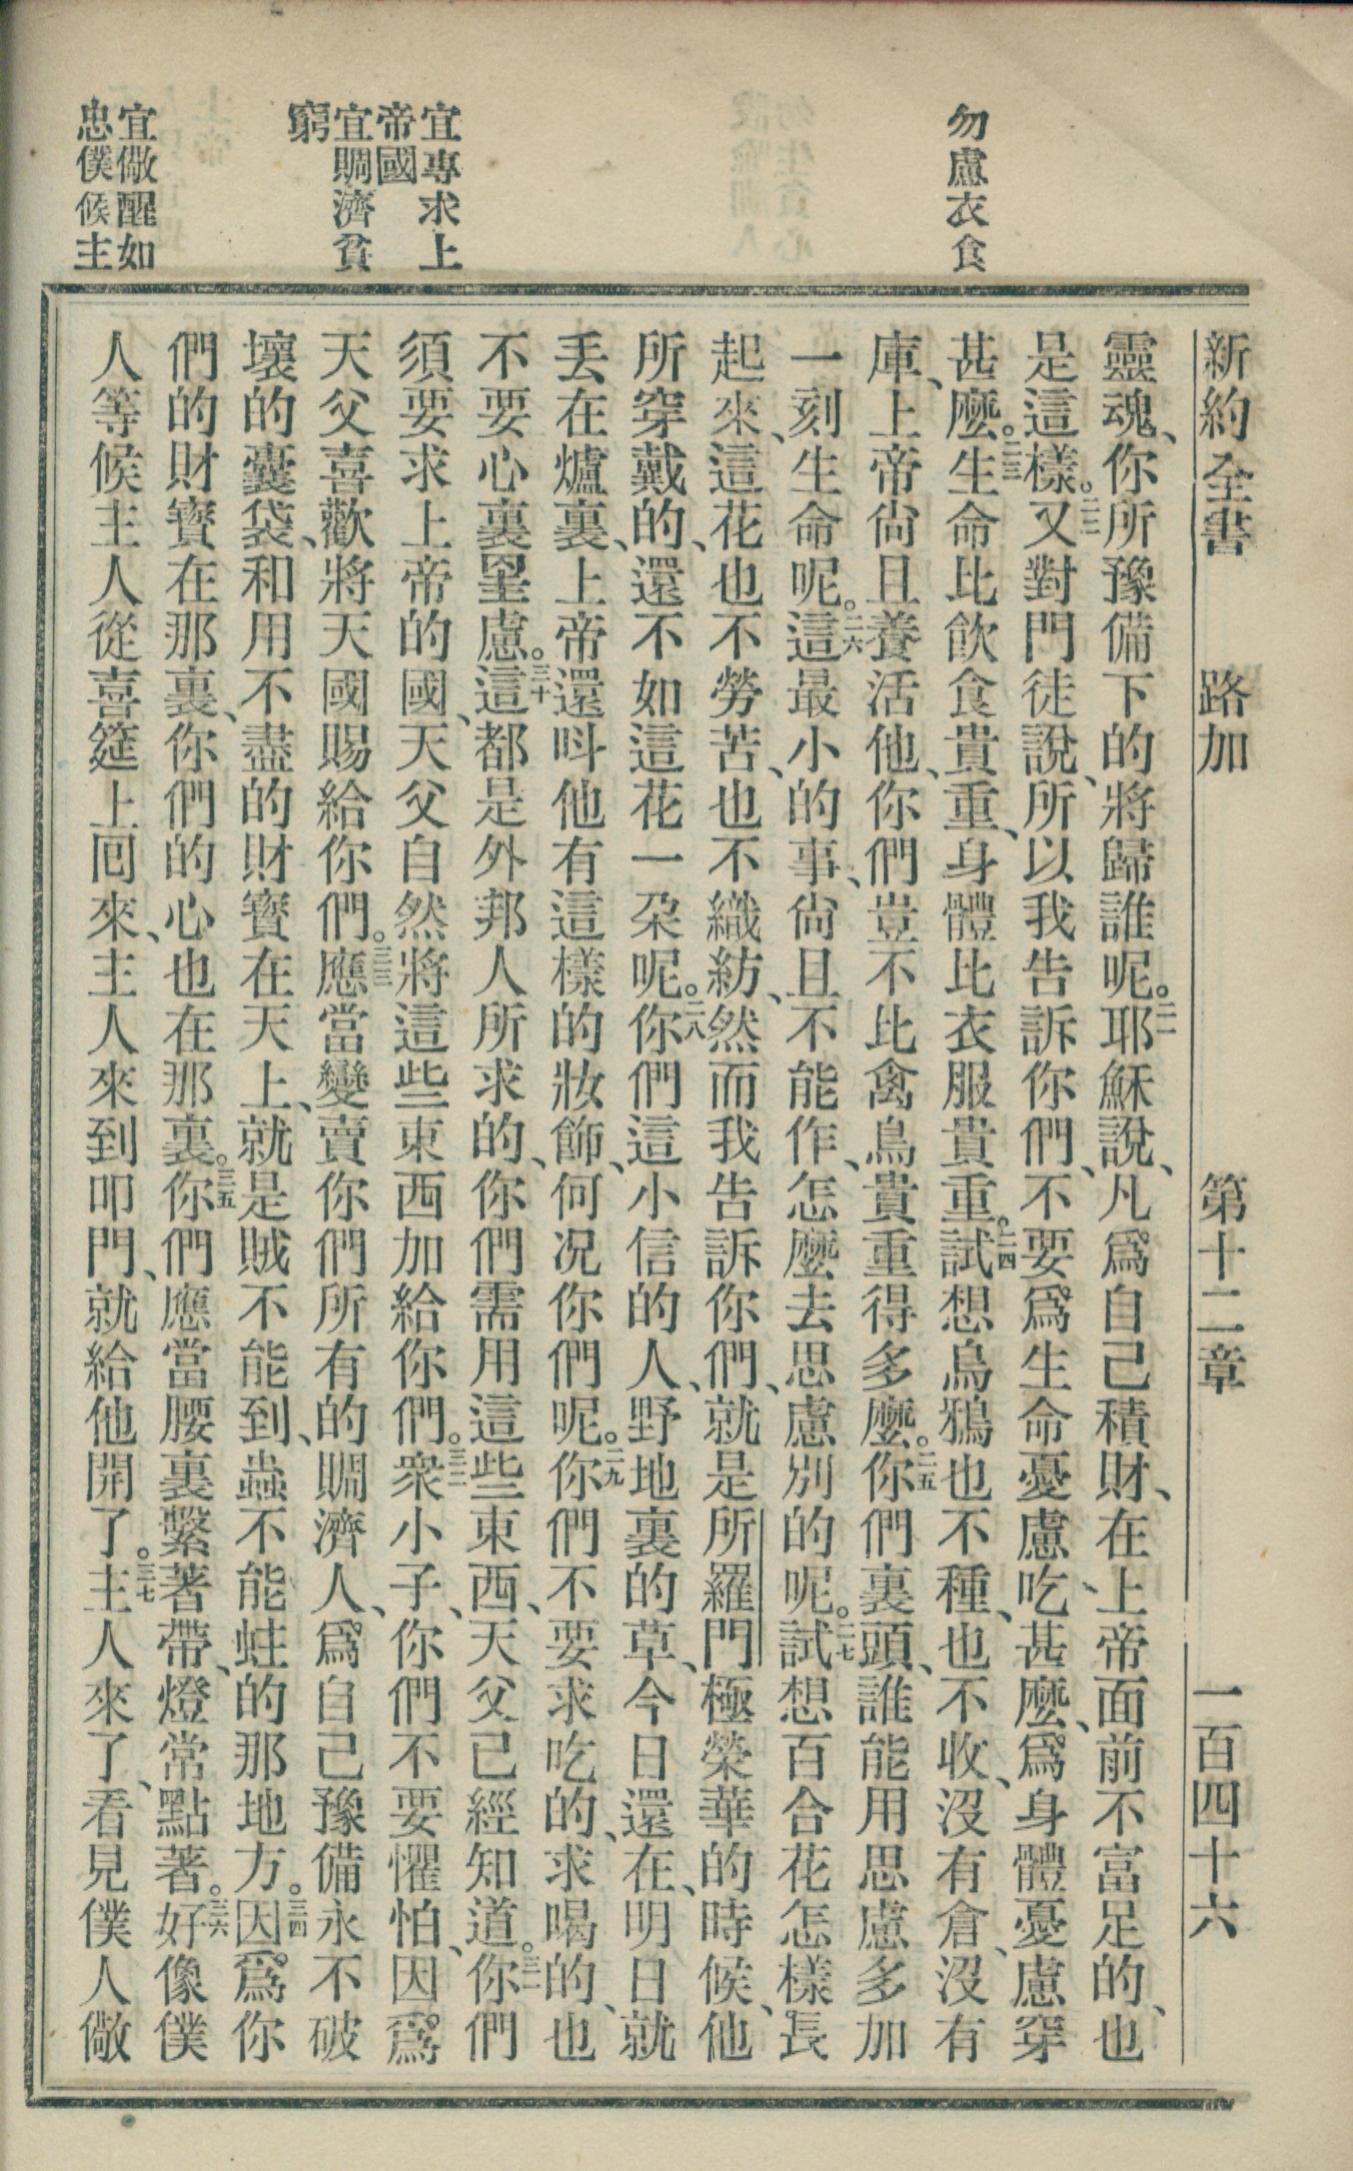 新約全書　路加　第十二章　一百四十六
勿慮衣食
宜專求上
帝國
宜賙濟貧
窮
宜儆醒如
忠僕候主
靈魂、你所豫備下的將歸誰呢。二一耶穌說、凡爲自己積財、在上帝面前不富足的、也
是這樣。二二又對門徒說、所以我告訴你們、不要爲生命憂慮吃甚麼、爲身體憂慮穿
甚麼。二三生命比飲食貴重、身體比衣服貴重。二四試想烏鴉也不種、也不收、沒有倉、沒有
庫、上帝尙且養活他、你們豈不比禽鳥貴重得多麼。二五你們裏頭、誰能用思慮多加
一刻生命呢。二六這最小的事、尙且不能作、怎麼去思慮別的呢。二七試想百合花怎樣長
起來、這花也不勞苦、也不織紡、然而我告訴你們、就是所羅門極榮華的時候、他
所穿戴的、還不如這花一朶呢。二八你們這小信的人、野地裏的草、今日還在、明日就
丢在爐裏、上帝還呌他有這樣的妝飾、何况你們呢。二九你們不要求吃的、求喝的、也
不要心裏罣慮。三十這都是外邦人所求的、你們需用這些東西、天父已經知道。三一你們
須要求上帝的國、天父自然將這些東西加給你們。三二衆小子、你們不要懼怕、因爲
天父喜歡將天國賜給你們。三三應當變賣你們所有的賙濟人、爲自己豫備永不破
壞的囊袋、和用不盡的財寳在天上、就是賊不能到、蟲不能蛀的那地方。三四因爲你
們的財寳在那裏、你們的心也在那裏。三五你們應當腰裏繫著帶、燈常點著。三六好像僕
人等候主人從喜筵上囘來、主人來到叩門、就給他開了。三七主人來了、看見僕人儆